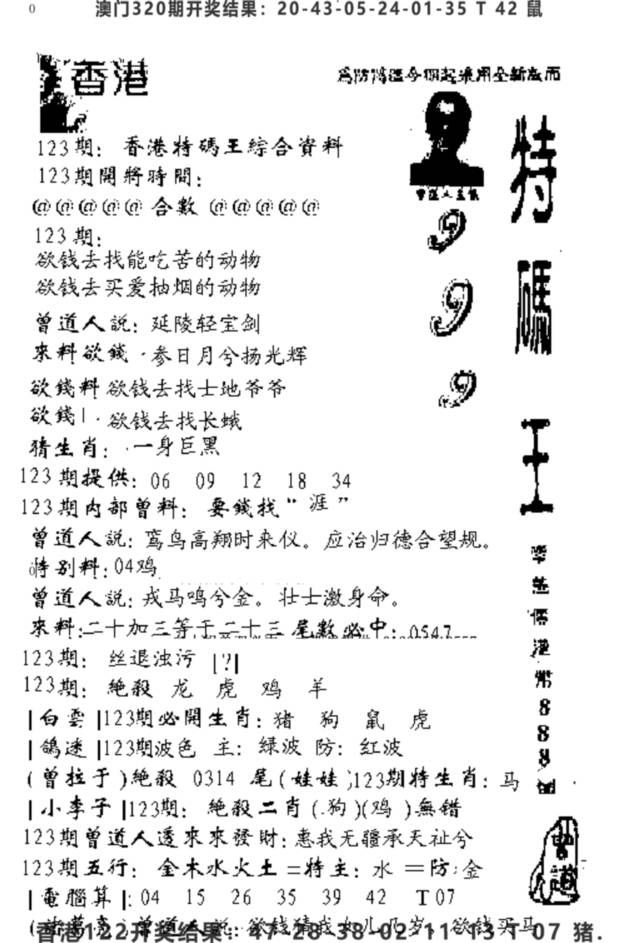 0
澳门320期开奖结果：20-43-05-24-01-35 T 42 鼠
香港
123期： 香港特碼王綜合資料
123期開將時間：
@@@@@ 合數 @@@@@
123期：
欲钱去找能吃苦的动物
欲钱去买爱抽烟的动物
曾道人説：延陵轻宝剑
來料欲錢·参日月兮扬光辉
欲錢料 欲钱去找士地爷爷
欲錢|·欲钱去找长蛾
猜生肖：·一身巨黑
123期提供：06 09 12 18 34
123期内部曾料： 要錢找“涯”
曾道人説：鸾鸟高翔时来仪。应治归德合望规。
特别料：04鸡
曾道人説：戎马鸣兮金。壮士激身命。
來料:二十加三等于二十三 尾數必中：0547
123期： 丝退浊污 |?|
123期： 絶殺 龙 虎 鸡 羊
|白雲|123期必開生肖：猪 狗 鼠 虎
|鴿迷|123期波色 主：绿波 防：红波
(曾拉于)絶殺 0314 尾(娃娃)123期特生肖：马
|小李子|123期： 絶殺二肖(狗)(鸡)無错
123期曾道人透來來發財：惠我无疆承天祉兮
123期五行： 金木水火土=特主：水 =防：金
|電腦算|：04 15 26 35 39 42 T07
香港122开奖结果：47-28-38-02-11-13 T 07 猪.
曾道人
特碼王
888